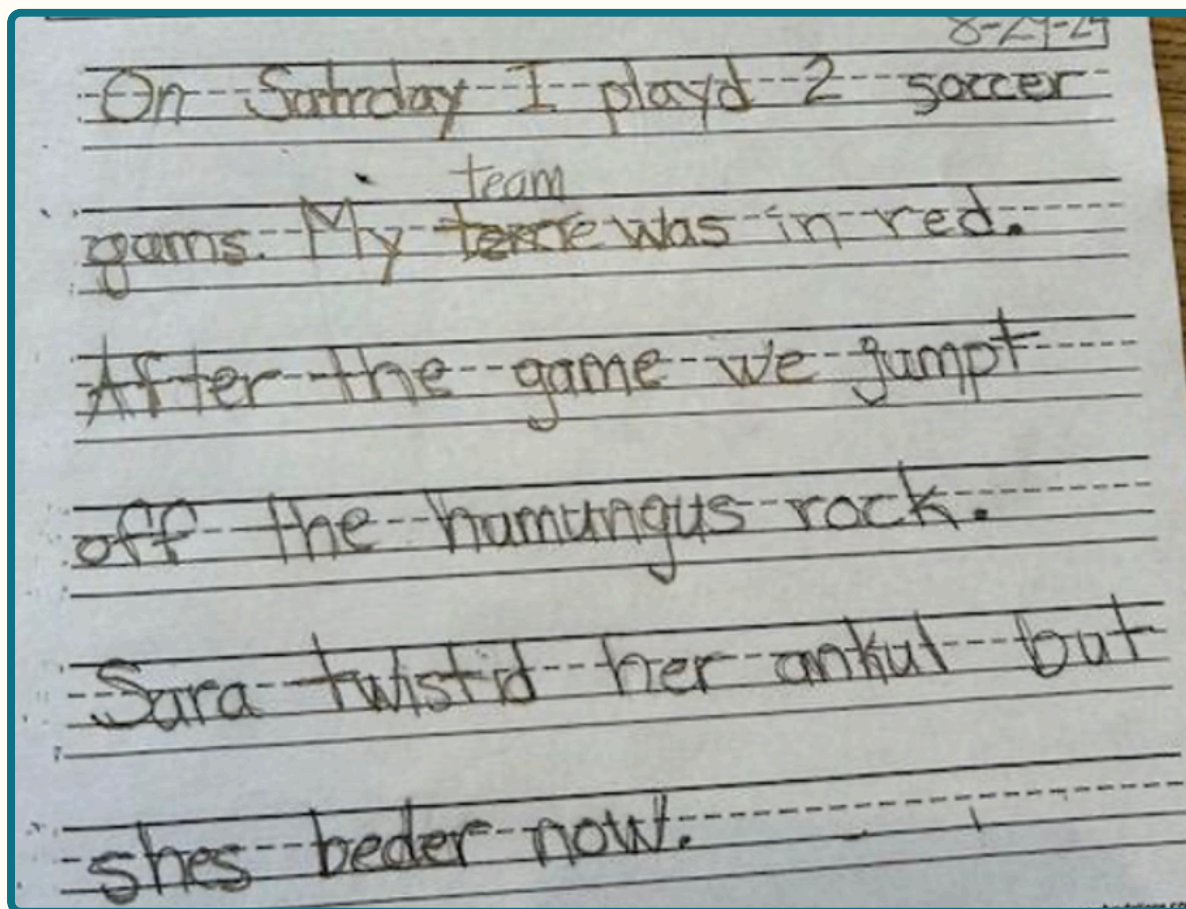 On Satrday I playd 2 soccer
team
gams. My was in red.
After the game we jumpt
off the humungus rock.
Sara twistid her ankul but
shes beder now.